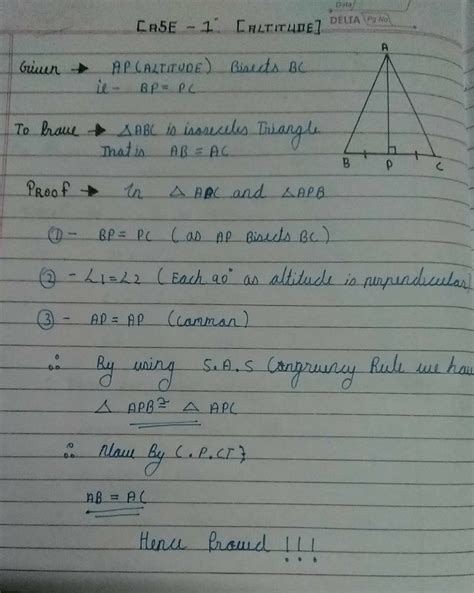 Date
DELTA Pg No
CASE - 1 [ALTITUDE]
Given → AP (ALTITUDE) Bisects BC
ie - BP = PC
To Prove → △ABC is isosceles Triangle
That is AB = AC
A
B P C
PROOF → In △ APC and △APB
① - BP = PC (as AP Bisects BC)
② - ∠1 = ∠2 (Each 90° as altitude is perpendicular)
③ - AP = AP (common)
∴ By using S.A.S Congruency Rule we have
△ APB ≅ △ APC
∴ Now By C.P.CT}
AB = AC
Hence Proved !!!